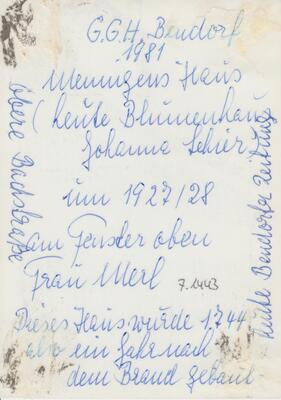 G.G.H. Bendorf
1981
Mennigens Haus
(heute Blumenhaus
Johanna Schier
um 1927/28
am Fenster oben
Frau Merl
7.1443
Dieses Haus wurde 1744
also ein Jahr nach
dem Brand gebaut
obere Bachstraße
heute Bendorfer Zeitung